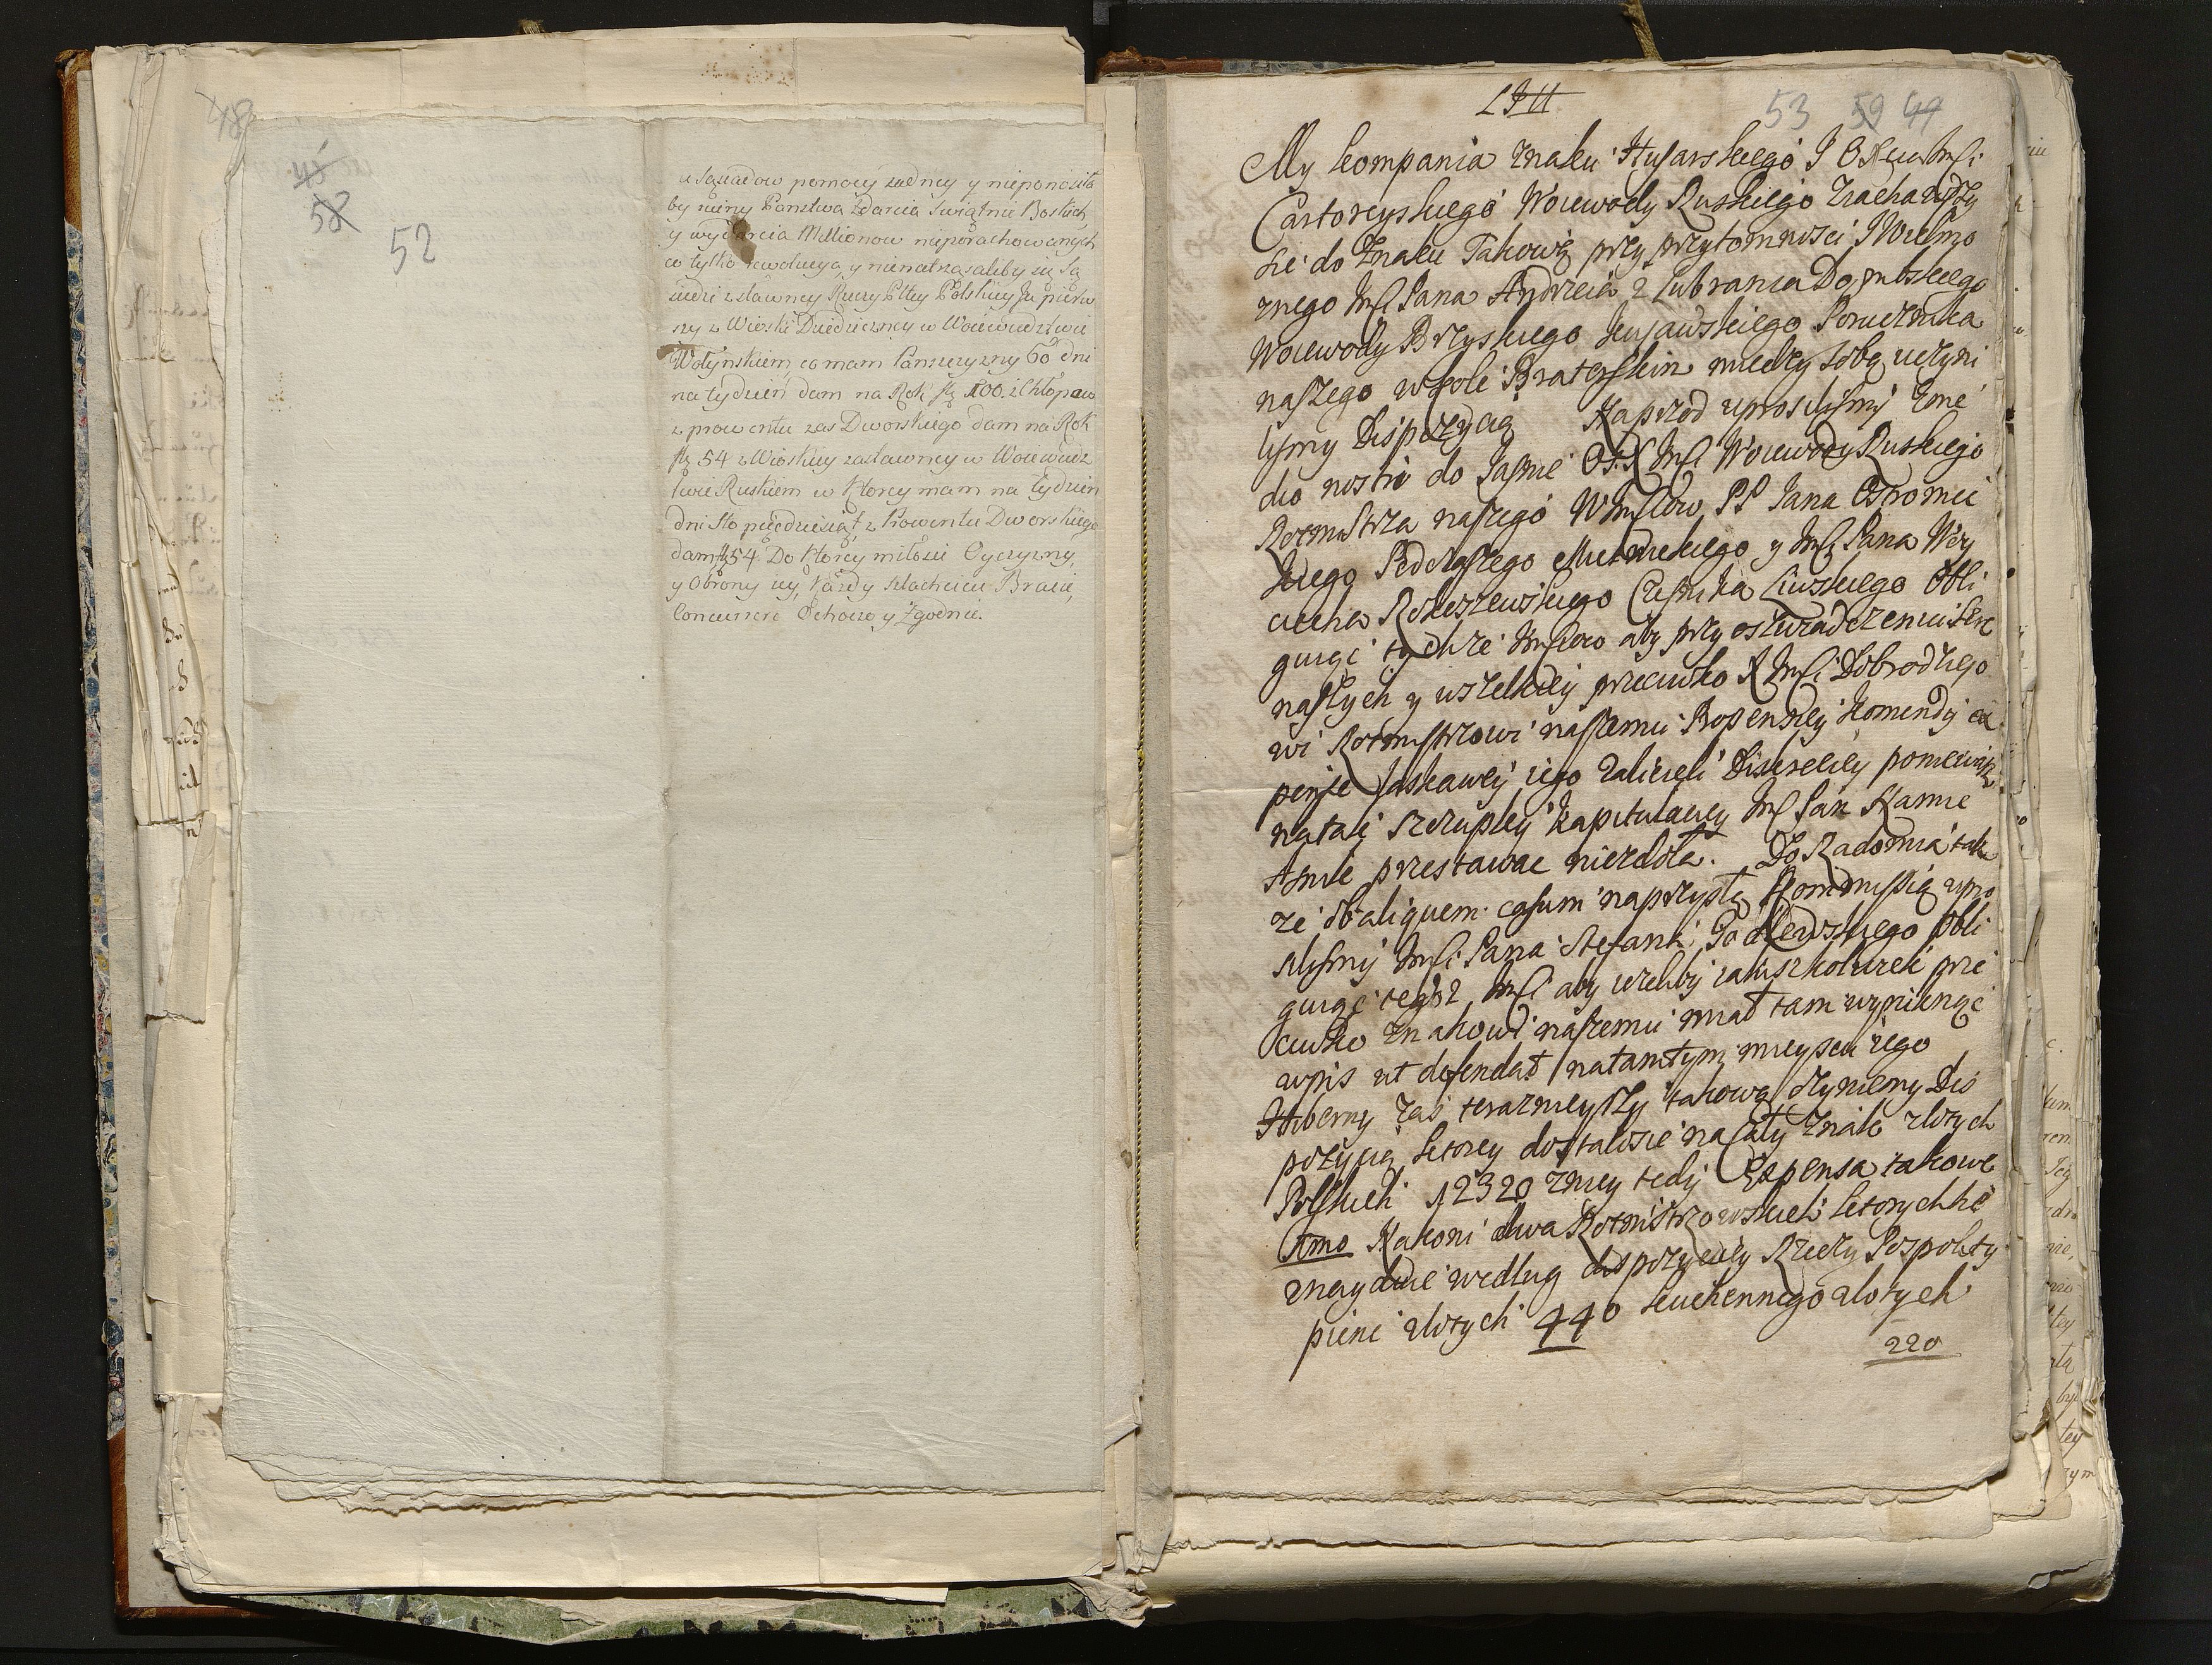 48
48
58
52
u Sąsiadow pomocy zadney y nieponosiła
by ruiny Panstwa Zdarcia Swiątnic Boskich
y wydarcia Millionow nieporachowanych
co tylko rewolucyą, y nienatrząsaliby się Są
siedzi z sławney Rzeczy Pltey Polskiey Ja pierw
szy z Wioski Dziedziczney w Woiewudztwie
Wołynskiem, co mam Panszczyzny 60 dni
na tydzień dam na Rok fł 100. z Chłopow
z prowentu zas Dworskiego dam na Rok
fł 54 z Wioskiey zastawney w Woiewudz
twie Ruskiem w ktorey mam na tydzien
dni sto pięcdziesiąt z Prowentu Dworskiego
dam fł 54. Do ktorey miłosci Oyczyzny,
y Obrony iey, każdy Szlachcicu Bracie,
Concurrere Ochoczo y Zgodnie.
LIII
53 59 49
My kompania Znaku Husarskiego J O Xcia Jmści
Cartoryskiego Woiewody Ruskiego Ziachawszy
sie do Znaku Takową przy przytomnosci J Wielmo
znego Jmść Pana Andrzeia z Lubrania Dąmbskiego
Woiewody Brzyskiego Kujawskiego Porucznika
naszego w kole Braterskim miedzy sobą uczyni
lysmy Dispozycią Naprzod uprosilismy Zone
do nosne do Jasnie Os. X Jmść Woiewody Ruskiego
Rotmistrza naszego WJmściow PP Jana Ostromec
kiego Podczaszego Mielnickiego y Jmść Pana Woy
ciecha Rokoszewskiego Czesnika Liwskiego Obli
guiąc tychze Jmściow aby przy oswiadczeniu serc
naszych y wszelkiey przeciwko X Jmści Dobrodzieio
wi Rotmistrzowi naszemu Propensiey Komendy ex
pensę Łaskawey iego zaliczeli Diskreciey poniewasz
natak szczupłey Kapitulacyy Jmść Pan Namie
stnik przestawac niezdoła. Do Radomia tak
ze ob aliquem casum naprzyszłą Kommissią upro
silismy Jmści Pana Stefana Podlewskiego Obli
guiąc tegoz Jmści aby iezeliby iakiszkolwiek prze
ciwko Znakowi naszemu miał tam wyniknąc
wpis ut defendat natamtym mieyscu iego
Hiberny zas terazneyszy takową czyniemy Dis
pozycią ktorey dostalosie na Cały Znak zlotych
Polskich 12320 Zniey tedy Expensa takowa
1mo Nakoni dwa Rotmistrzowskich ktorychhc
znayduie według dispozyciey Rzeczy Pospolity
pieni zlotych 440 kuchennego zlotych
220